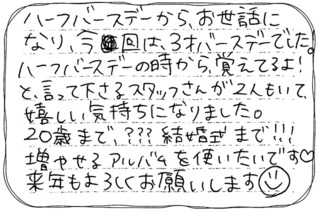 ハーフバースデーから、お世話に
なり、今回は、3才バースデーでした。
ハーフバースデーの時から、覚えてるよ!
と、言って下さるスタッフさんが2人もいて、
嬉しい気持ちになりました。
20歳まで、??? 結婚式まで!!!
増やせるアルバムを使いたいです♡
来年もよろしくお願いします☺